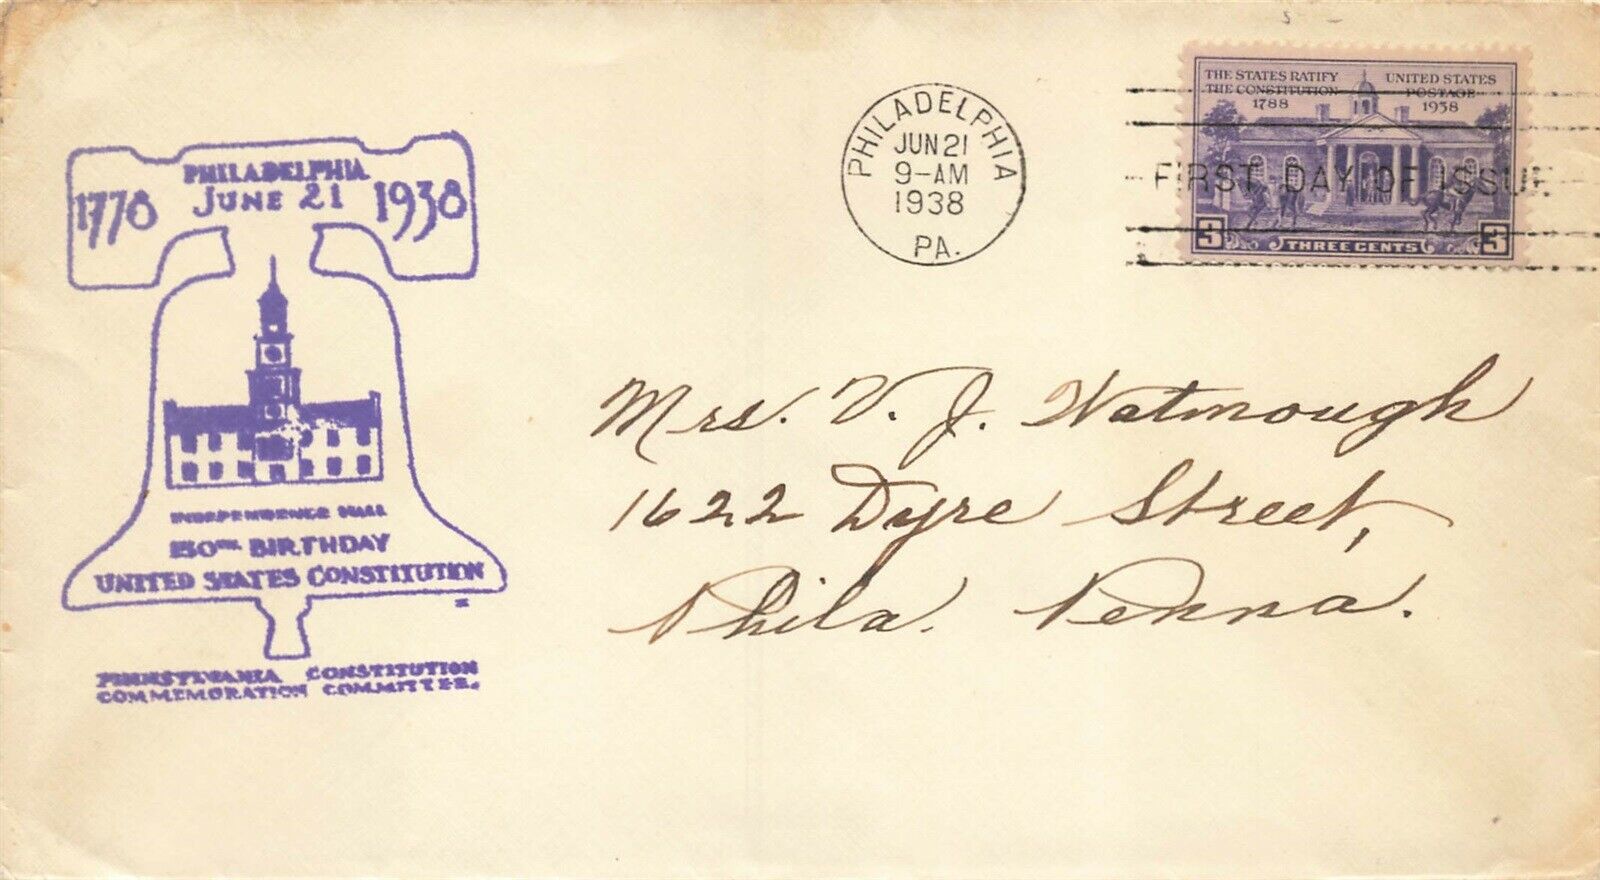 PHILADELPHIA
1778 JUNE 21 1938
INDEPENDENCE HALL
150TH BIRTHDAY
UNITED STATES CONSTITUTION
PENNSYLVANIA CONSTITUTION
COMMEMORATION COMMITTEE.
PHILADELPHIA
JUN 21
9-AM
1938
PA.
THE STATES RATIFY UNITED STATES
THE CONSTITUTION POSTAGE
1788 1938
FIRST DAY OF ISSUE
3 THREE CENTS 3
Mrs. V. J. Watmough
1622 Dyre Street,
Phila. Penna.